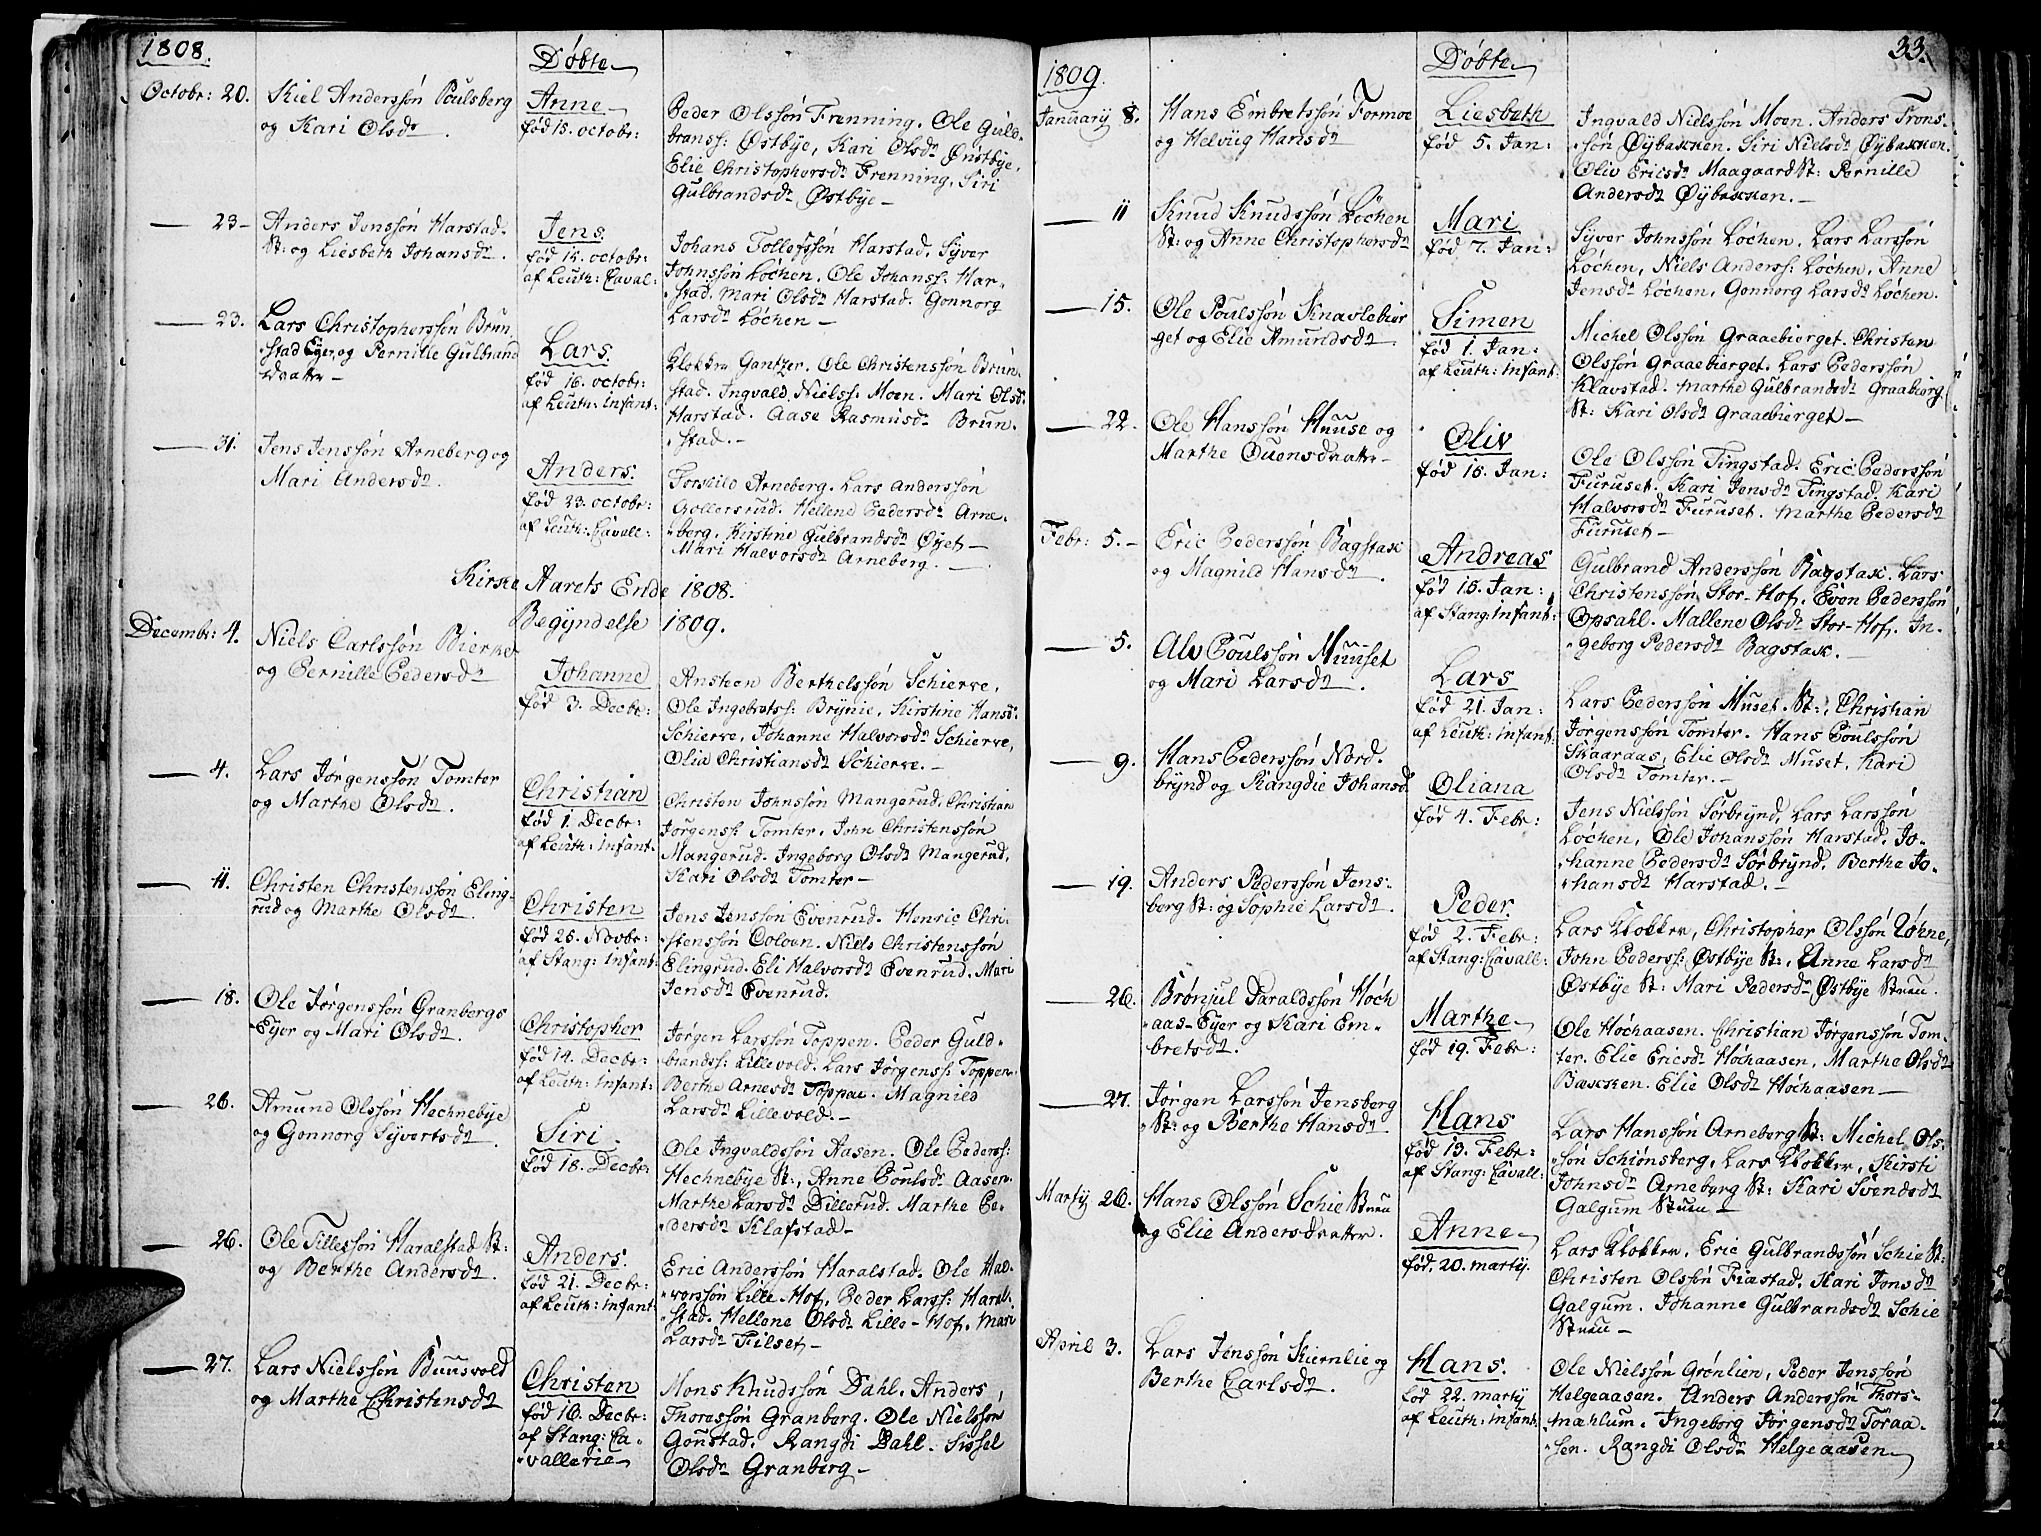 1808.
Døbte
Octobr: 20. Kiel Anderssön Poulsberg
og Kari Olsdr.
Anne
fød 15. octobr:
Peder Olssön Frenning. Ole Guld-
branss: Østbye, Kari Olsdr Østbye,
Elie Christophersdr Frenning, Siri
Gulbrandsdr Østbye
23 Anders Jenssön Harstad-
St: og Liesbeth Johansdr.
Jens
fød 15. octobr:
af Leuth: Caval:
Johans Tollefssön Harstad, Syver
Johnssön Løchen. Ole Johanss: Har-
stad. Mari Olsdr Harstad. Gonnorg
Larsdr Løchen
23. Lars Christopherssön Brun
stad Eger, og Pernille Gulbrand
Datter
Lars
fød 16. octobr:
af Leuth: infant:
Klokker Gantzer. Ole Christenssön Brun
stad. Ingvald Nielss: Moen. Mari Olsdr
Harstad. Aase Rasmusdr Brun
stad.
31. Jens Jenssön Arneberg og
Mari Andersdr.
Anders.
fød 23. octobr:
af Leuth: Cavall:
Torkild Arneberg. Lars Anderssön
Gollersrud. Hellene Pedersdr Arne-
berg, Kirstine Gulbrandsdr Øyet
Mari Halvorsdr Arneberg.
Kirke Aarets Ende 1808.
Begyndelse 1809.
Decembr: 4. Niels Carlssön Bierke
og Pernille Pedersdr
Johanne
fød 3. Decbr:
Ansteen Berthelssön Schierre,
Ole Ingebretss: Brynie, Kirstine Hansdr
Schierre, Johanne Halvorsdr Schierre,
Oliv Christiansdr Schierre.
4. Lars Jørgenssön Tomter
og Marthe Olsdr.
Christian
fød 1. Decbr:
af Leuth: infant.
Christen Johnssön Mangerud. Christian
Jörgenss: Tomter, John Christenssön
Mangerud. Ingeborg Olsdr Mangerud,
Kari Olsdr Tomter
11. Christen Christenssön Eling-
rud og Marthe Olsdr
Christen
fød 25. Novbr:
af Stang: infant:
Jens Jenssön Evenrud. Henric Chri-
stenssön Coloen. Niels Christenssön
Elingrud. Eli Halvorsdr Evenrud. Mari
Jensdr Evenrud.
18. Ole Jørgenssön Granbergs
Eyer og Mari Olsdr.
Christopher
fød 14. Decbr:
af Leuth: infant:
Jørgen Larssön Toppen. Peder Guld-
brandss: Lillevold. Lars Jørgenss: Toppen.
Berthe Arnesdr Toppen. Magnild
Larsdr Lillevold.
26. Amund Olssön Hechnebye
og Gonnorg Syvertsdr.
Siri.
fød 18. Decbr:
Ole Ingvaldssön Aasen. Ole Pederss:
Hechnebye St:, Anne Poulsdr Aasen.
Marthe Larsdr Dillerud. Marthe Pe-
dersdr Klafstad
26. Ole Tillessön Haralstad St:
og Berthe Andersdr.
Anders.
fød 21. Decbr:
af Leuth: infant:
Eric Anderssön Haralstad. Ole Hal-
vorssön Lille Hof, Peder Larss: Haral-
stad. Hellene Olsdr Lille-Hof, Mari
Larsdr Filset
27. Lars Nielssön Buusvold
og Marthe Christensdr
Christen
fød 16. Decbr:
af Stang: Ca-
vallerie
Mons Knudssön Dahl. Anders
Thoressön Granberg. Ole Nielssön
Gonstad. Rangdi Dahl. Sissel
Olsdr Granberg
33.
1809.
Døbte
January 8. Hans Embretssön Formoe
og Helvig Hansdr
Liesbeth
fød 5. Jan:
Ingvald Nielssön Moen. Anders Trons-
sön Øybakken. Siri Nielsdr Øybakken.
Oliv Ericsdr Maagaard St: Pernille
Andersdr Øybakken.
11 Knud Knudssön Løchen
St: og Anne Christophersdr
Mari
fød 7. Jan:
Syver Johnssön Løchen. Lars Larssön
Løchen, Niels Anderss: Løchen, Anne
Jensdr Løchen, Gonnorg Larsdr Løchen.
15. Ole Poulssön Knavlebier
get og Elie Amundsdr
Simen
fød 1. Jan:
af Leuth: infant:
Michel Olssön Graaebierget. Christen
Olssön Graaebierget. Lars Pederssön
Klavstad. Marthe Gulbrandsdr Graabierg
St: Kari Olsdr Graaebierget
22. Ole Hanssön Huuse og
Marthe Ouensdatter
Oliv
fød 15. Jan:
Ole Olssön Tingstad. Eric Pederssön
Furuset. Kari Jensdr Tingstad. Kari
Halvorsdr Furuset. Marthe Pedersdr
Furuset
Febr: 5. Eric Pederssön Bagstax
og Magnild Hansdr.
Andreas
fød 15. Jan:
af Stang: infant:
Gulbrand Anderssön Bagstax. Lars
Christenssön Stor-Hof. Even Pederssön
Opsahl. Mallene Olsdr Stor-Hof. In-
geborg Pedersdr Bagstax.
5. Alv Poulssön Muuset
og Mari Larsdr.
Lars
fød 21. Jan:
af Leuth: infant:
Lars Pederssön Muset St:, Christian
Jørgenssön Tomter. Hans Poulssön
Skaaraas, Elie Olsdr Muset, Kari
Olsdr Tomter.
9. Hans Pederssön Nord-
brynd og Rangdie Johansdr
Oliana
fød 4. Febr:
Jens Nielssön Sørbrynd, Lars Larssön
Løchen, Ole Johanssön Harstad. Jo-
hanne Pedersdr Sørbrynd, Berthe Jo-
hansdr Harstad.
19. Anders Pederssön Jens-
berg St: og Sophie Larsdr.
Peder
fød 2. Febr:
af Stang: Cavall:
Lars Klokker, Christopher Olssön Løhne,
John Pederss: Østbye St:, Anne Larsdr
Østbye St: Mari Pedersdr Østbye Stuen.
26. Brønjul Haraldssön Høch
aas-Eyer og Kari Em-
bretsdr.
Marthe
fød 19. Febr:
Ole Høchaasen. Christian Jørgenssön Tom-
ter. Elie Ericsdr Høchaasen, Marthe Olsdr
Bæcken. Elie Olsdr Høchaasen
27. Jørgen Larssön Jensberg
St: og Berthe Hansdr
Hans
fød 13. Febr:
af Stang: Cavall:
Lars Hanssön Arneberg St: Michel Ols-
sön Schiønsberg, Lars Klokker, Kirsti
Johnsdr Arneberg St: Kari Svendsdr
Galgum Stuen
Martij 26. Hans Olssön Schie Stuen
og Elie Andersdatter.
Anne
fød. 20. martij
Lars Klokker. Eric Gulbrandssön Schie St:
Christen Olssön Fiæstad. Kari Jonsdr
Galgum. Johanne Gulbrandsdr Schie
Stuen
April 3. Lars Jenssön Kiernlie og
Berthe Carlsdr.
Hans.
fød 22. martij
af Leuth: infant:
Ole Nielssön Grønlien, Peder Jenssön
Helgeaasen. Anders Anderssön Thors-
mæhlum. Ingeborg Jørgensdr Toraa-
sen. Rangdi Olsdr Helgeaasen